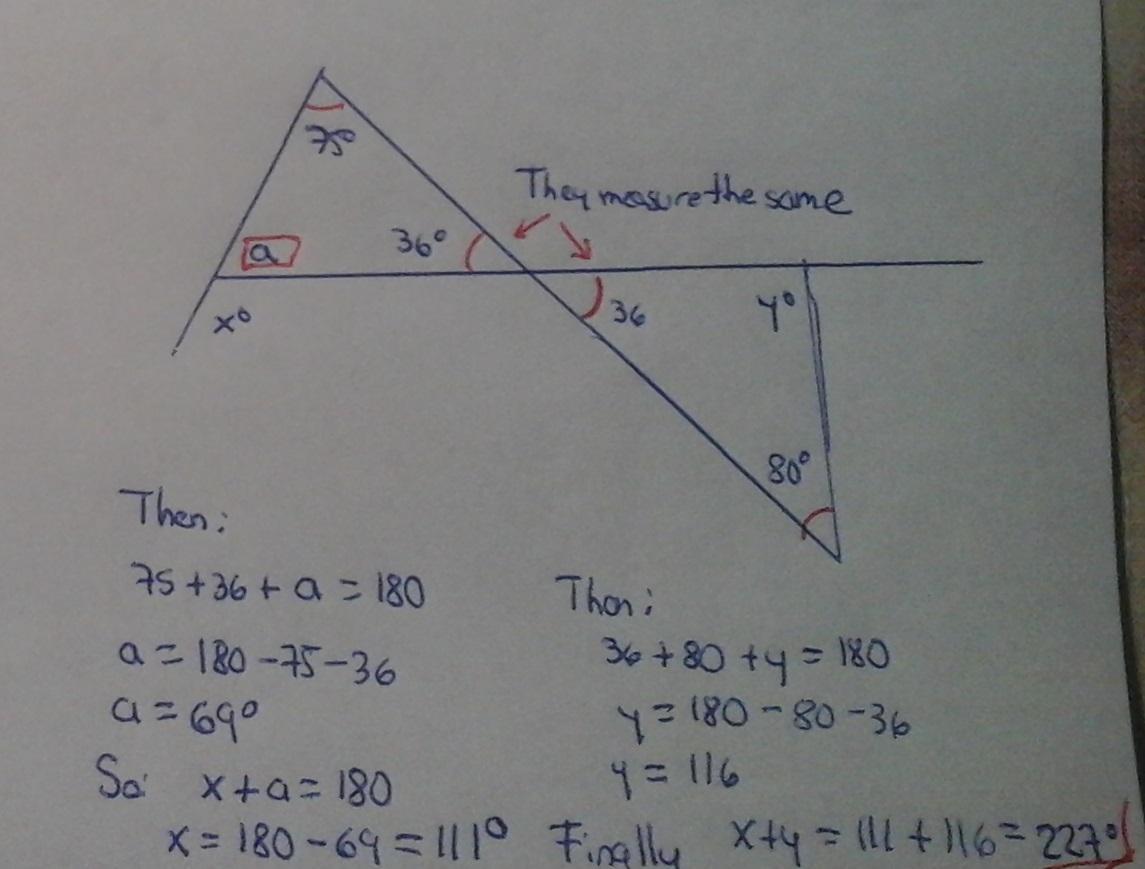 75°
They measure the same
a
36°
x°
36
y°
80°
Then:
75+36+a=180
a=180-75-36
a=69°
So: x+a=180
x=180-69=111°
Then:
36+80+y=180
y=180-80-36
y=116
Finally x+y=111+116=227°